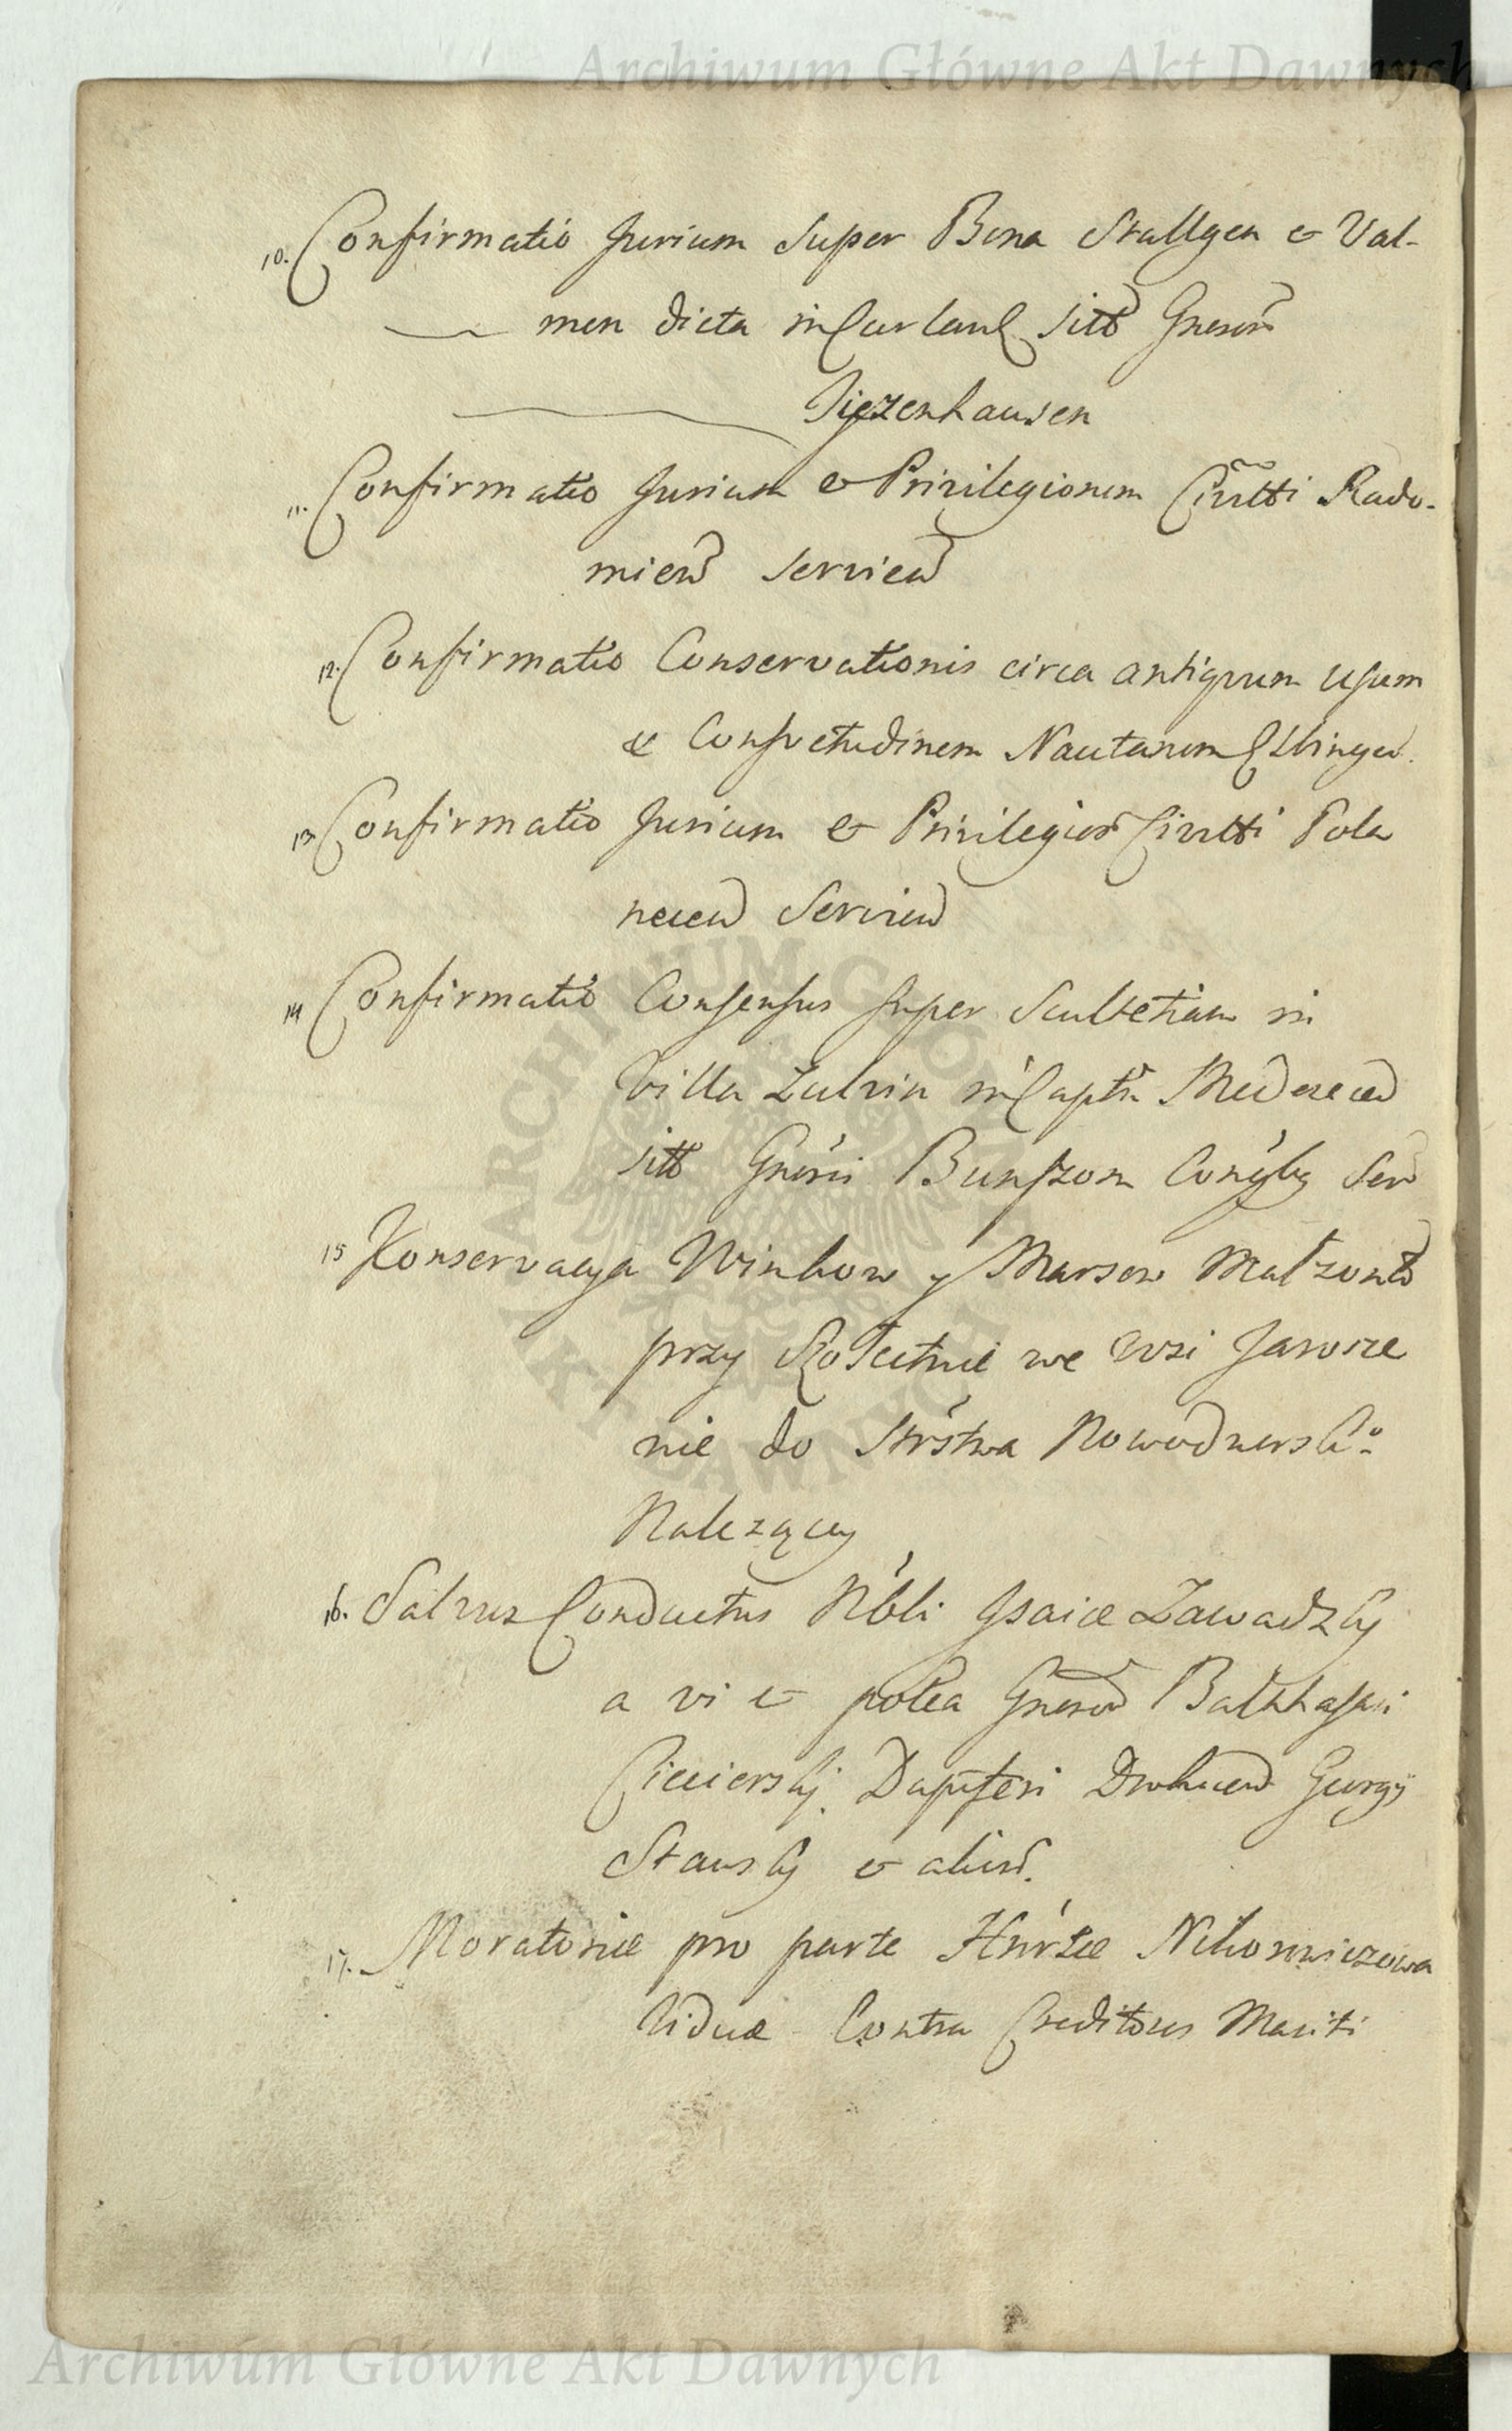 Archiwum Główne Akt Dawnych
10. Confirmatio Jurium super Bona Stallgen & Val-
men dicta in Curland sitt Gneroso
Tyzenhausen
11. Confirmatio Jurium & Privilegiorum Civitti Rado-
mien servien
12. Confirmatio Conservationis circa antiquum usum
& Consvetudinem Nautarum Elbingen.
13 Confirmatio Jurium & Privilegior Civitti Pola
necen Servien
14 Confirmatio Consensus super Scultetiam in
Villa Zulvin in Captu Miedzecen
sitt Gnosis Bunszom Conjbg Ser
15 Konserwacya Winkow y Marsow Małzonkow
przy Sołectwie we wsi Jarosze
nie do Strstwa Nowodworski:o
Należącey
16. Salvus Conductus Nbli Isaiæ Zawadzky
a vi & potea Gneror Balthasari
Ciecierskj Dapiferi Drohicen Georgÿ
Stawsky & alior.
17. Moratoriæ pro parte Hnrtæ Nikorowiczowa
Viduæ Contra Creditores Mariti
ARCHIWUM GŁÓWNE AKT DAWNYCH
Archiwum Główne Akt Dawnych